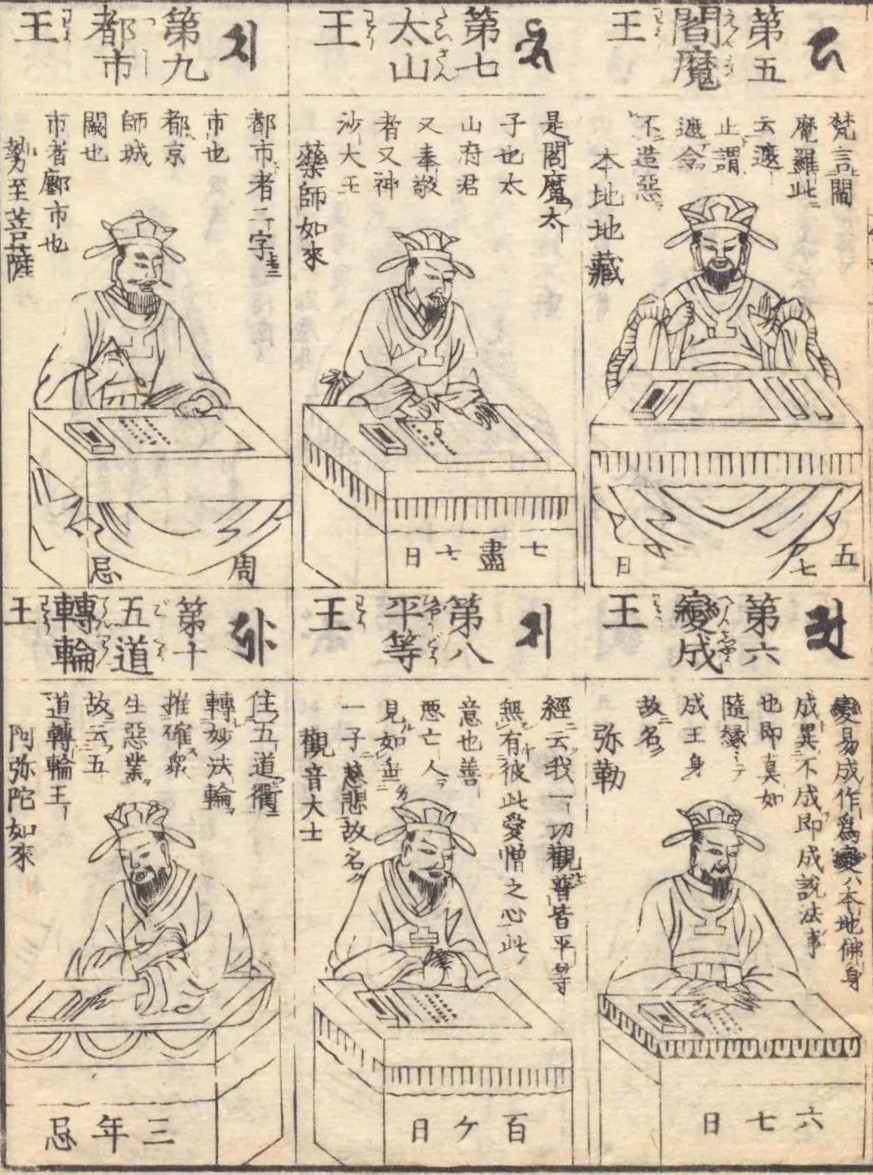 第五
閻魔
王
梵言閻
魔羅此ニ
云遮
止謂
遮令
不造惡
本地地藏
五七日
第六
變成
王
變易成作爲變ハ本地佛身
成異不成即成説法事
也即真如
隨縁
成王身
故名
弥勒
六七日
第七
太山
王
是閻魔太
子也太
山府君
又奉敬
者又神
沙大王
藥師如來
七盡七日
第八
平等
王
經云我一切觀普皆平等
無有彼此愛憎之心此
意也善
悪亡人
見如
一子慈悲故名
觀音大士
百ケ日
第九
都市
王
都市者二字
市也
都京
師城
闕也
市者廓市也
勢至菩薩
周忌
第十
五道
轉輪
王
住五道衢
轉妙法輪
推確衆
生惡業
故云五
道轉輪王
阿弥陀如來
三年忌